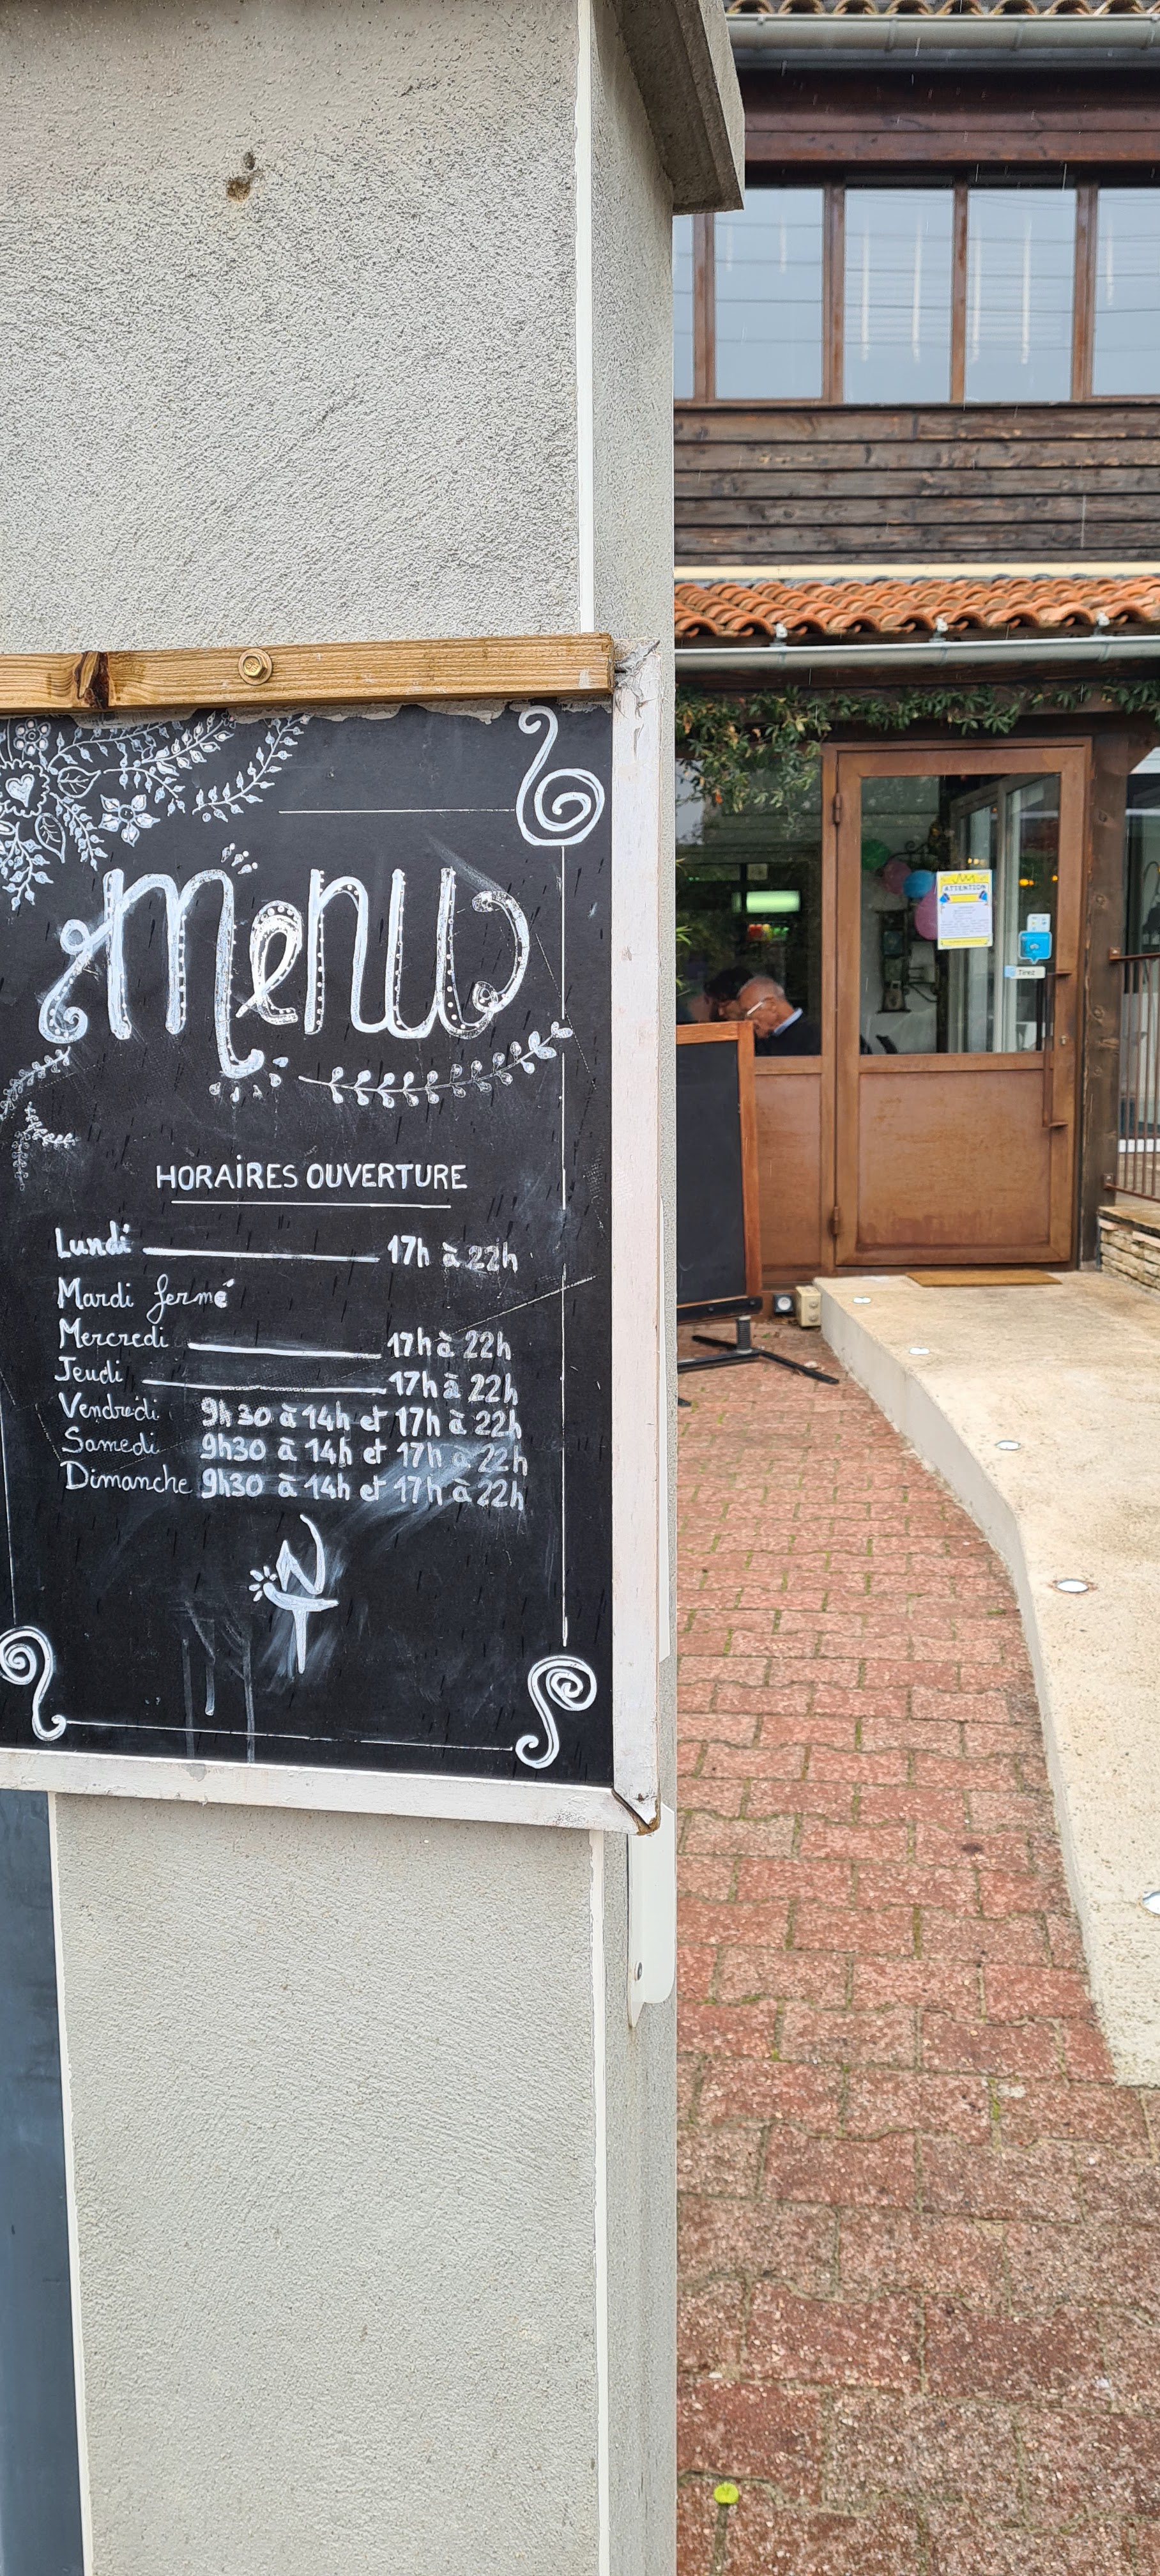 Menu
HORAIRES OUVERTURE
Lundi 17h à 22h
Mardi fermé
Mercredi 17h à 22h
Jeudi 17h à 22h
Vendredi 9h30 à 14h et 17h à 22h
Samedi 9h30 à 14h et 17h à 22h
Dimanche 9h30 à 14h et 17h à 22h
ATTENTION
Tirez